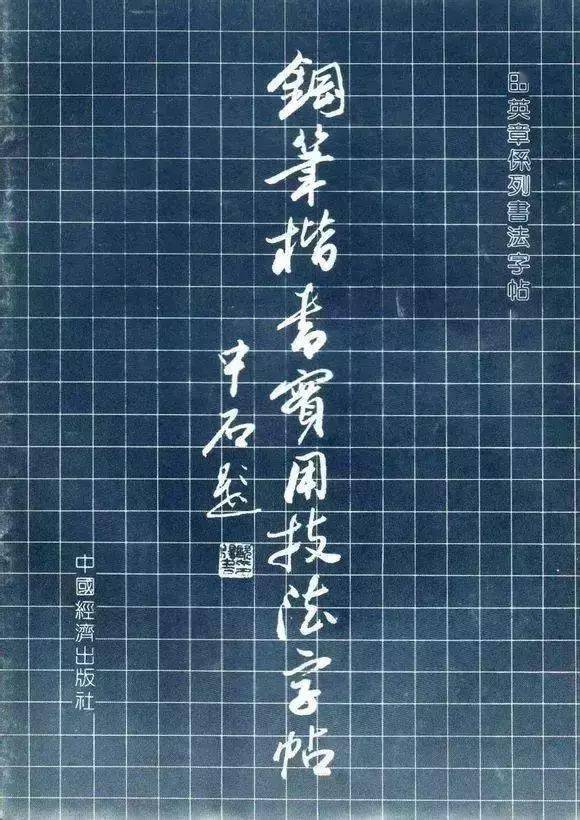 英章係列書法字帖
鋼筆楷書實用技法字帖
中石題
中國經濟出版社